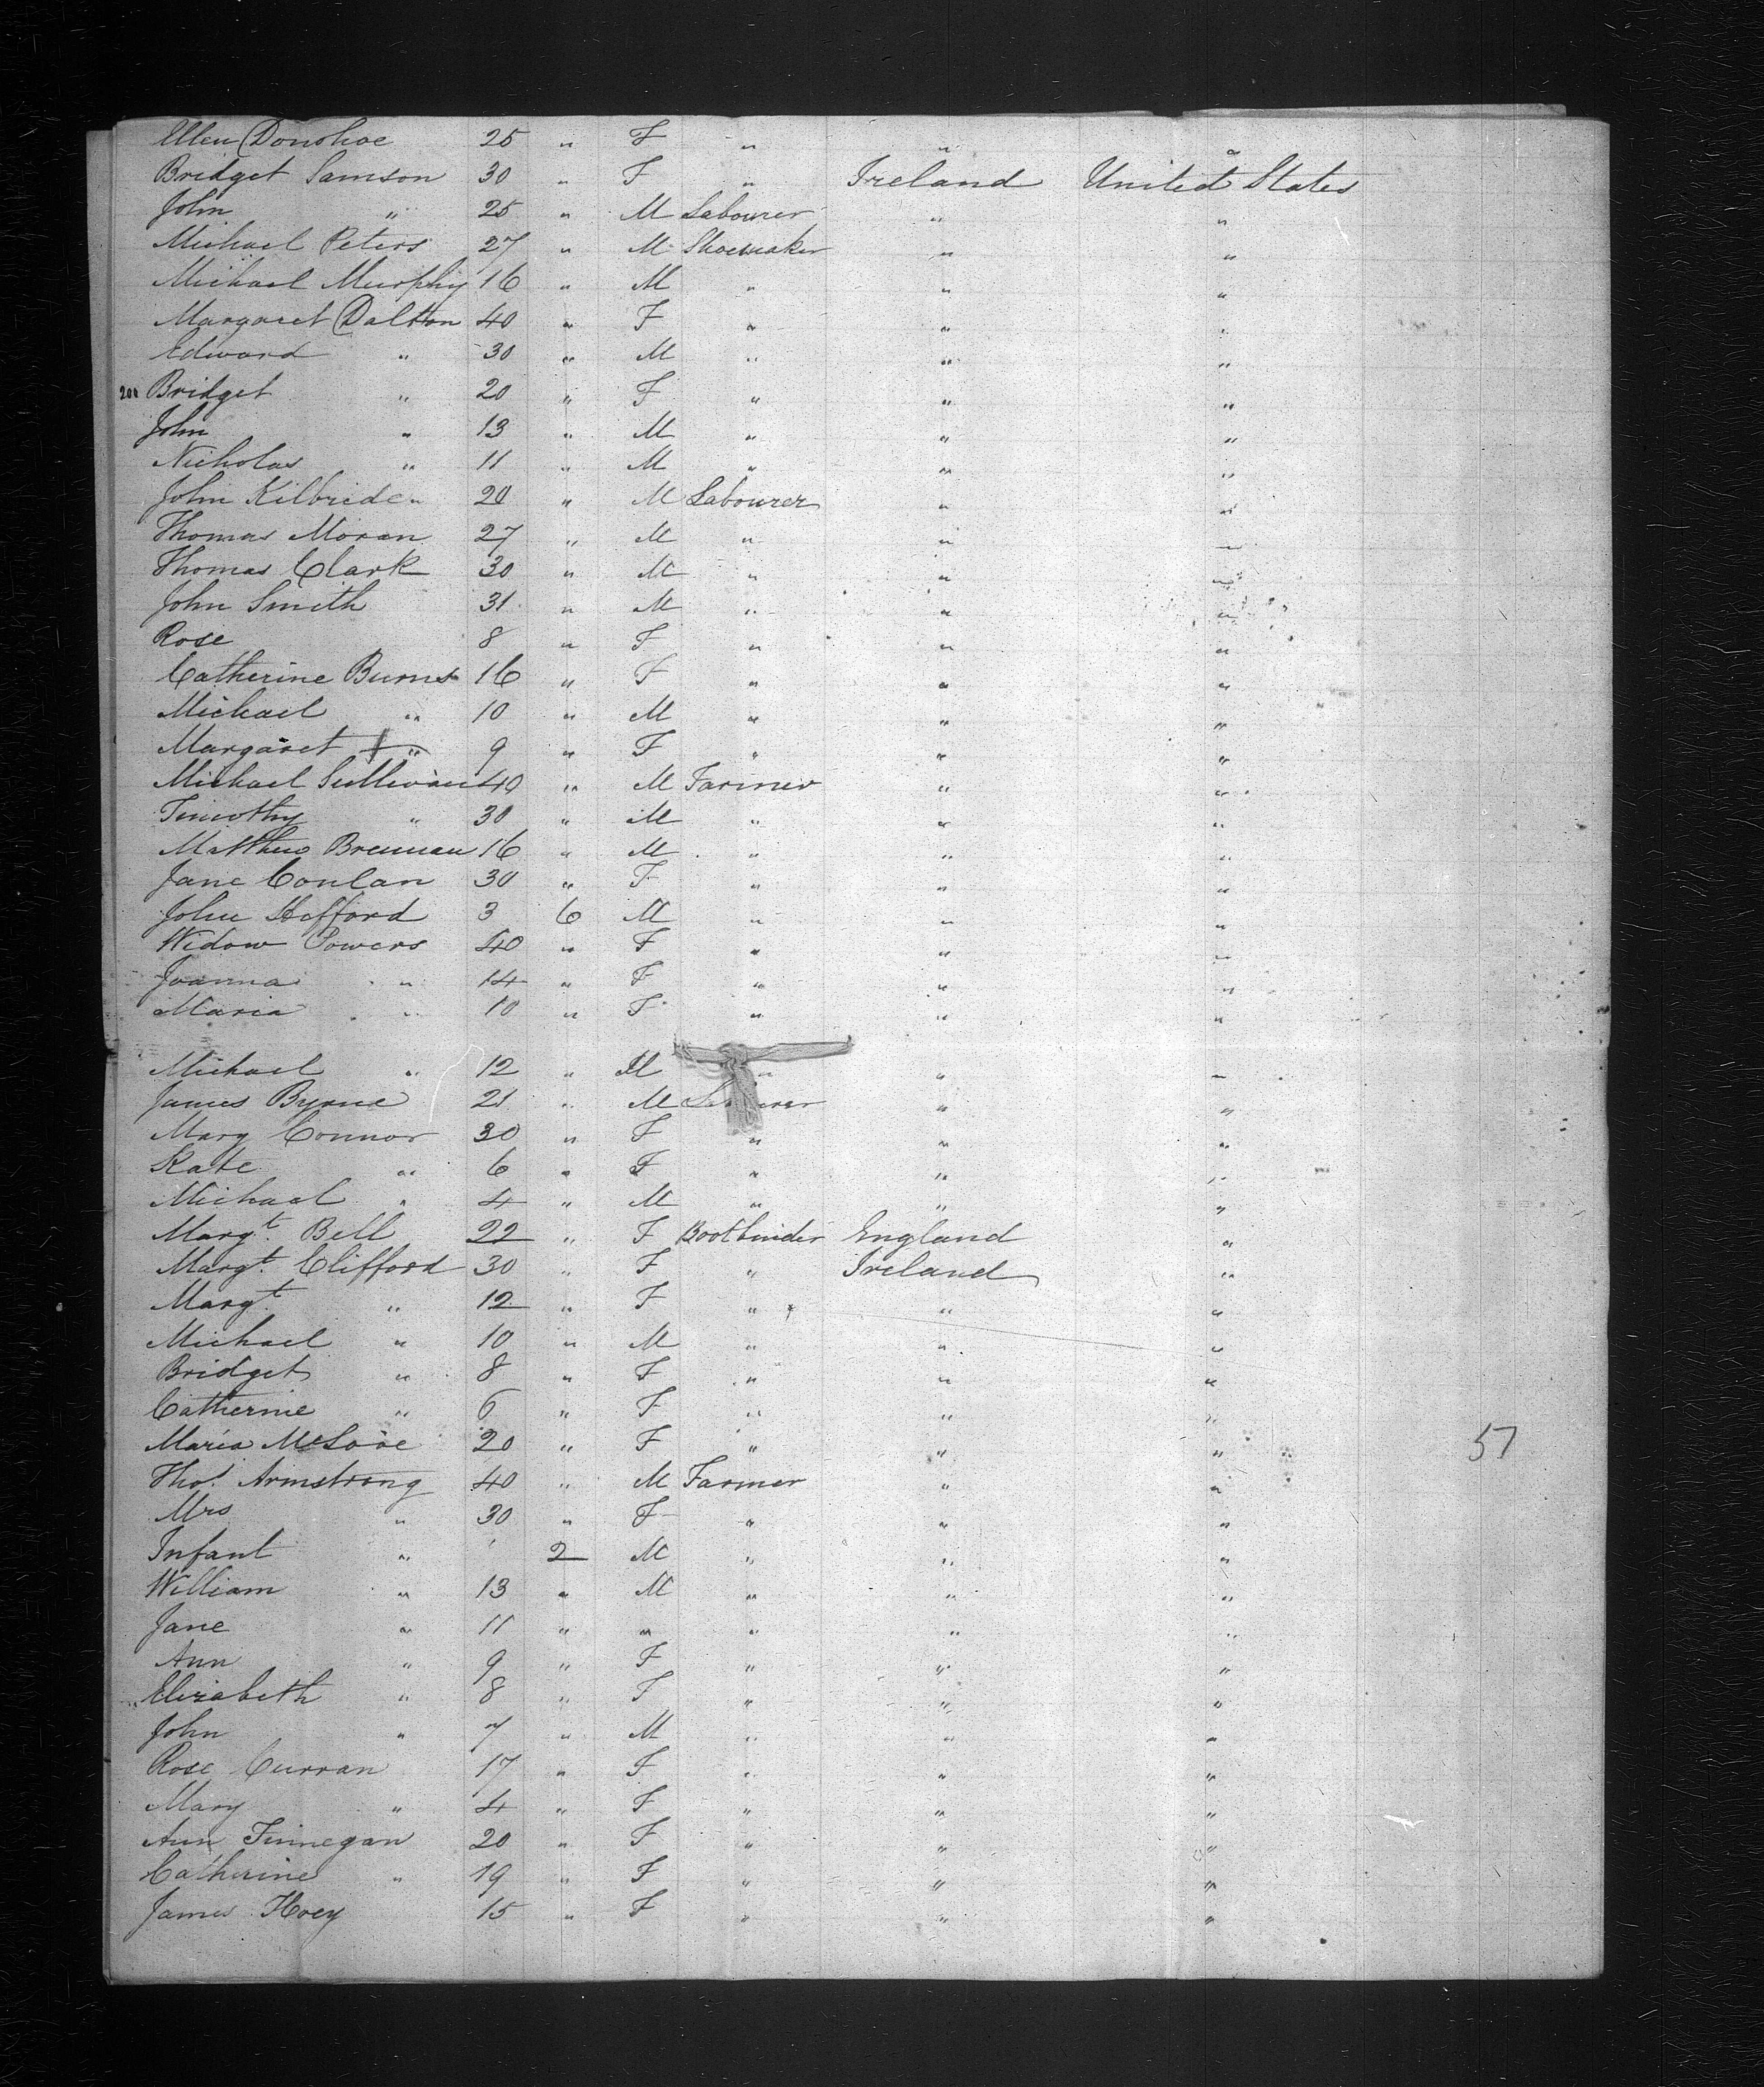 Ellen Donohoe 25 " F " " "
Bridget Samson 30 " F " Ireland United States
John " 25 " M Labourer " "
Michael Peters 27 " M Shoemaker " "
Michael Murphy 16 " M " " "
Margaret Dalton 40 " F " " "
Edward " 30 " M " " "
200 Bridget " 20 " F " " "
John " 13 " M " " "
Nicholas " 11 " M " " "
John Kilbride " 20 " M Labourer " "
Thomas Moran 27 " M " " "
Thomas Clark 30 " M " " "
John Smith 31 " M " " "
Rose 8 " F " " "
Catherine Burns 16 " F " " "
Michael " 10 " M " " "
Margaret " 9 " F " " "
Michael Sullivan 40 " M Farmer " "
Timothy " 30 " M " " "
Matthew Brennan 16 " M " " "
Jane Conlan 30 " F " " "
John Hofford 3 6 M " " "
Widow Powers 40 " F " " "
Joanna " 14 " F " " "
Maria " 10 " F " " "
Michael " 12 " M " " "
James Byrne 21 " M Labourer " "
Mary Connor 30 " F " " "
Kate " 6 " F " " "
Michael " 4 " M " " "
Margt. Bell 22 " F Bootbinder England "
Margt. Clifford 30 " F " Ireland "
Margt. " 12 " F " " "
Michael " 10 " M " " "
Bridget " 8 " F " " "
Catherine " 6 " F " " "
Maria 20 " F " " " 57
Thos. Armstrong 40 " M Farmer " "
Mrs " 30 " F " " "
Infant " 2 M " " "
William " 13 " M " " "
Jane " 11 " " " " "
Ann " 9 " F " " "
Elizabeth " 8 " F " " "
John " 7 " M " " "
Rose Curran 17 " F " " "
Mary " 4 " F " " "
Ann Finnegan 20 " F " " "
Catherine " 19 " F " " "
James Hoey 15 " F " " "